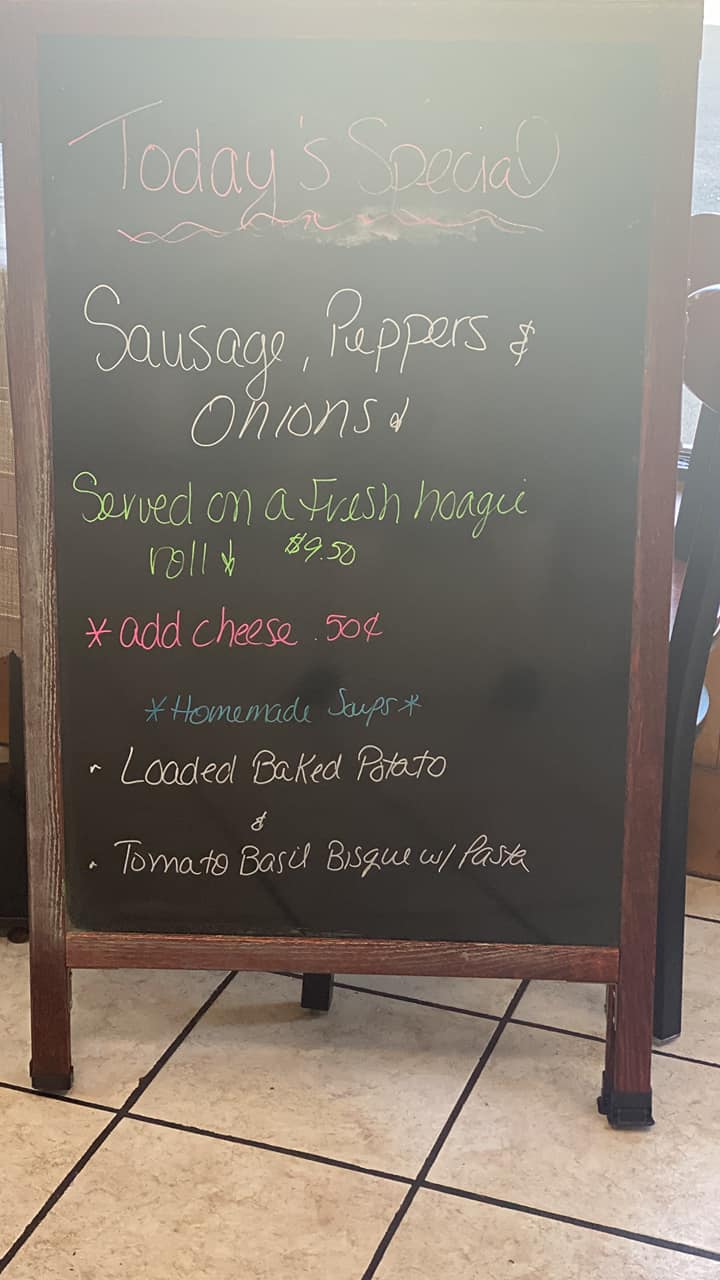 Today's Special
Sausage, Peppers &
Onions
Served on a Fresh hoagie
roll $9.50
*add cheese .50¢
*Homemade Soups*
• Loaded Baked Potato
&
• Tomato Basil Bisque w/ Pasta